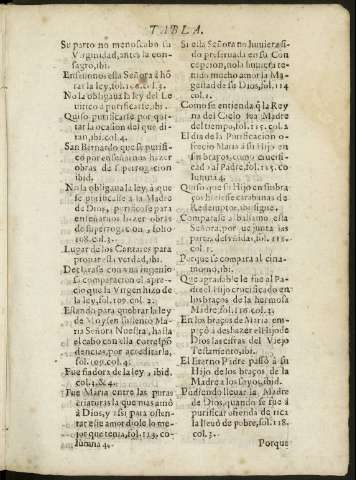 TABLA.
Su parto no menoscabo su
Virginidad, antes la con-
sagrò, ibi.
Enseñonos esta Señora à hõ
rar la ley, fol. 108. col. 3.
No la obligaua la ley del Le
uitico a purificarse, ibi.
Quiso purificarse por qui-
tar la ocasion del que di-
ran, ibi. col. 4.
San Bernardo que se purifi-
cò por enseñarnos hazer
obras de superrogacion
ibid.
No la obligaua la ley, à que
se purificasse a la Madre
de Dios, purificòse para
enseñarnos hazer obras
de superrogacion, folio
108. col. 3.
Lugar de los Cantares para
prouar esta verdad, ibi.
Declarase con vna ingenio
sa comparacion el apre-
cio que la Virgen hizo de
la ley, fol. 109. col. 2.
Estando para quebrar la ley
de Moysen sustentò Ma-
ria Señora Nuestra, hasta
el cabo con ella correspõ
dencias, por acreditarla,
fol. 109. col. 4.
Fue fiadora de la ley, ibid.
col. 1. & 4.
Fue Maria entre las puras
criaturas la que mas amò
à Dios, y assi para osten-
tar este amor diole lo me-
jor que tenia, fol. 113. co-
lumna 4.
Si esta Señora no huuiera si-
do preseruada en su Con
cepcion, no la huuiera te-
nido mucho amor la Ma
gestad de su Dios, fol. 114
col. 1.
Como se entienda q̃ la Rey
na del Cielo sea Madre
del temor, fol. 115. col. 2
El dia de la Purificacion o-
frecio Maria à su Hijo en
sus braços, como crucifi-
cado al Padre, fol. 115. co
lumna 4.
Quiso que su Hijo en sus bra
ços hiziesse carabanas de
Redemptor, ibi sigue.
Comparase al balsamo esta
Señora, por que junta las
partes desvnidas, fol. 118.
col. 1.
Porque se compara al cina-
momo, ibi.
Que agradable le fue al Pa-
dre el Hijo crucificado en
los braços de la hermosa
Madre, fol. 118. col. 3.
En los braços de Maria em-
peçò à deshazer el Hijo de
Dios las cifras del Viejo
Testamento, ibi.
El Eterno Padre passò a su
Hijo de los braços de la
Madre a los suyos, ibid.
Pudiendo lleuar la Madre
de Dios, quando se fue à
purificar ofrenda de rica
la lleuò de pobre, fol. 118.
col. 3.
Porque